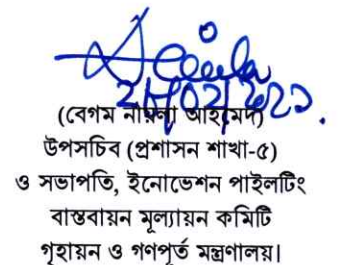 (বেগম নায়লা আহমেদ)
উপসচিব (প্রশাসন শাখা-৫)
ও সভাপতি, ইনোভেশন পাইলটিং
বাস্তবায়ন মূল্যায়ন কমিটি
গৃহায়ন ও গণপূর্ত মন্ত্রণালয়।